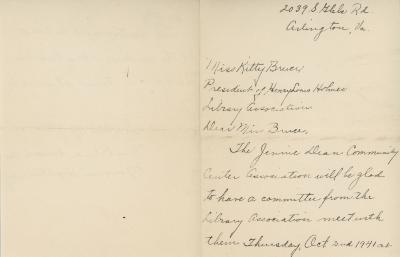 2039 S. Glebe Rd
Arlington, Va.
Miss Kitty Bruce,
President of Henry Louis Holmes
Library Association
Dear Miss Bruce,
The Jennie Dean Community
Center Association will be glad
to have a committee from the
Library Association meet with
them Thursday, Oct 2nd 1941 at